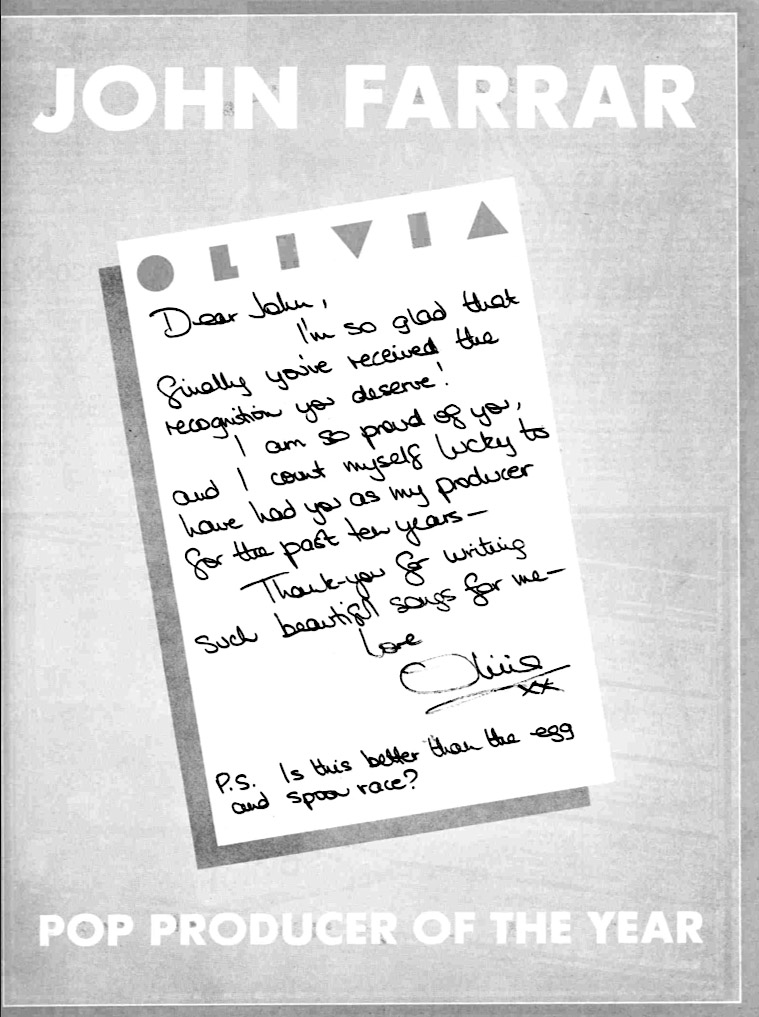 JOHN FARRAR
OLIVIA
Dear John,
I'm so glad that
finally you've received the
recognition you deserve!
I am so proud of you,
and I count myself lucky to
have had you as my producer
for the past ten years—
Thank-you for writing
such beautiful songs for me—
Love
Olivia
xx
P.S. Is this better than the egg
and spoon race?
POP PRODUCER OF THE YEAR